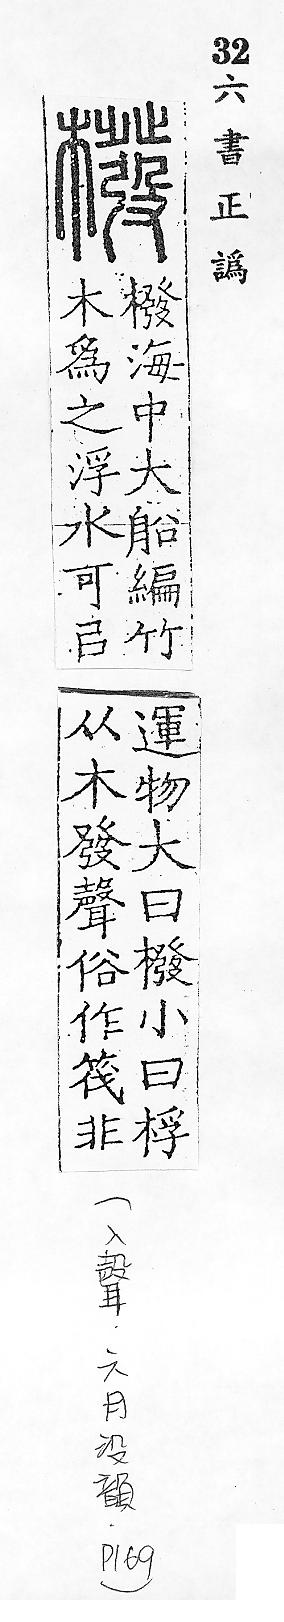 32六書正譌
橃
橃海中大船編竹
木爲之浮水可㠯
運物大曰橃小曰桴
从木發聲俗作筏非
(入聲．六月没韻．P169)